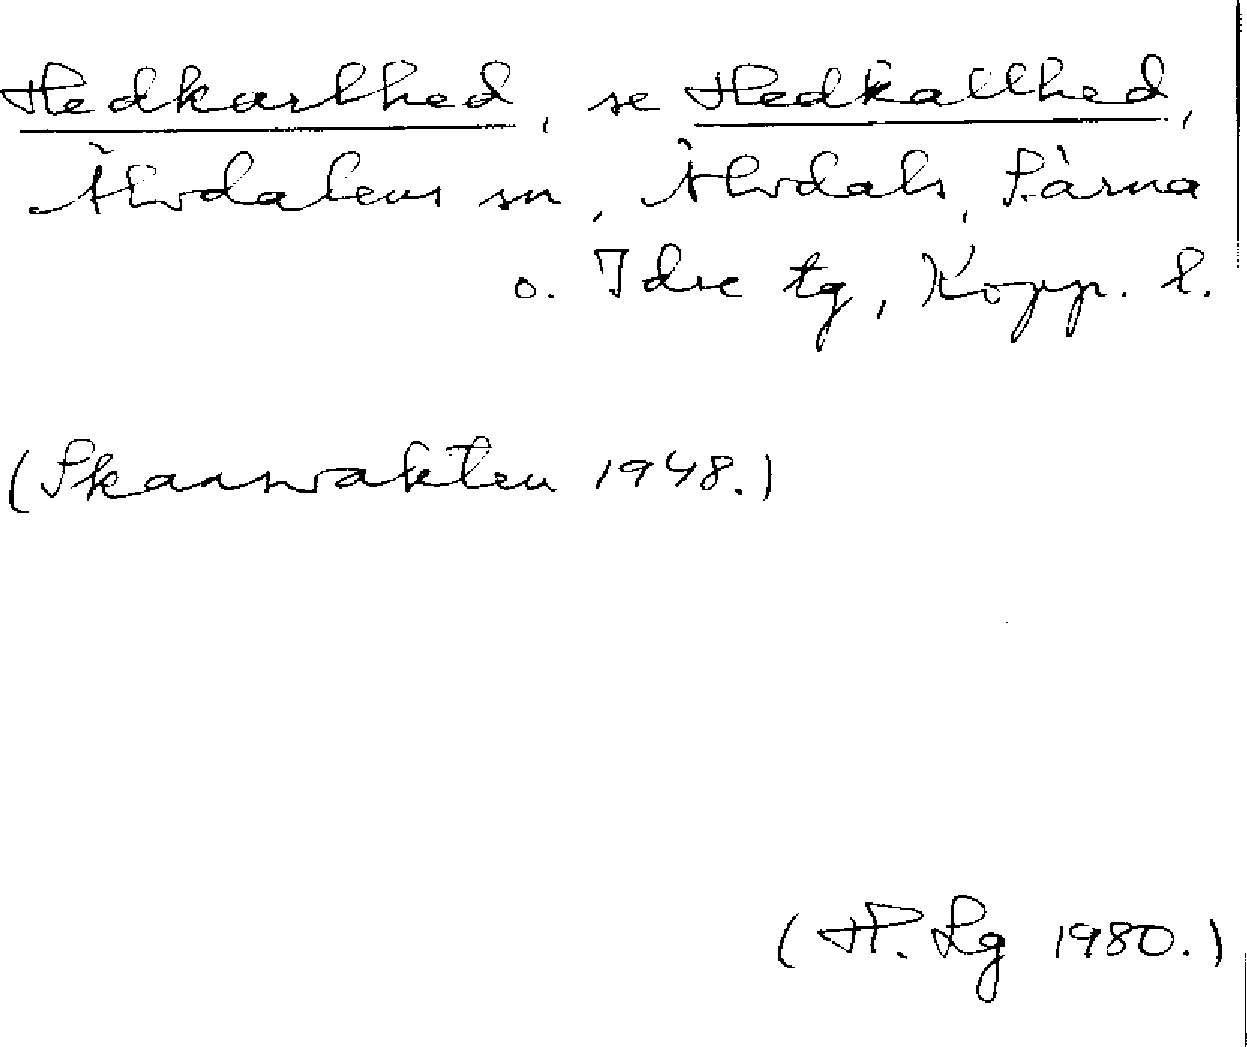 Hedkarlhed, se Hedkallhed,
Älvdalens sn, Älvdals, Särna
o. Idre tg, Kopp. l.
(Skansvakten 1948.)
(H. Lg 1980.)